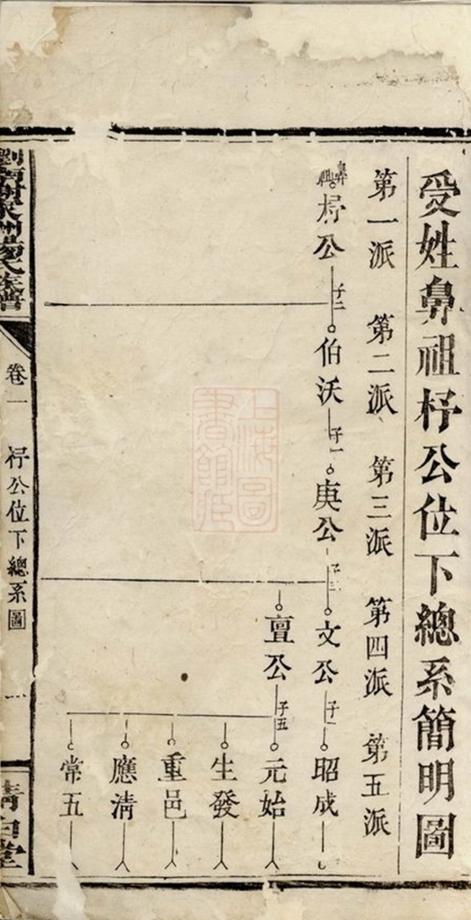 受姓鼻祖杼公位下總系簡明圖
第一派 第二派 第三派 第四派 第五派
鼻祖
杼公 子二 伯沃 子一 庚公 文公 子一 昭成
亶公 子五 元始
生發
重邑
應清
常五
卷一 杼公位下總系圖 一
清白堂
上海圖書館藏